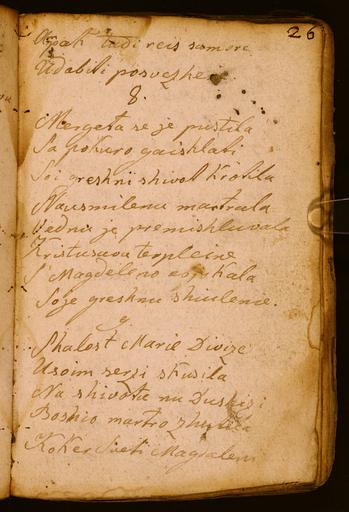 26
Apak tudi reis samore
Udabili posvezhe
8.
Mergeta se je pustila
Sa pokuro gaishlati
Soi greshni shivot krotila
Nausmilenu martrala
Vednu je premishluvala
Kristusava terpleine
S' Magdeleno
Soje greshnu shiulenie.
9
Shalost Marie Divize
Usoim serzi skusila
Na shivotu nu Dushi
Boshio martro
Koker Sveti Magdalen